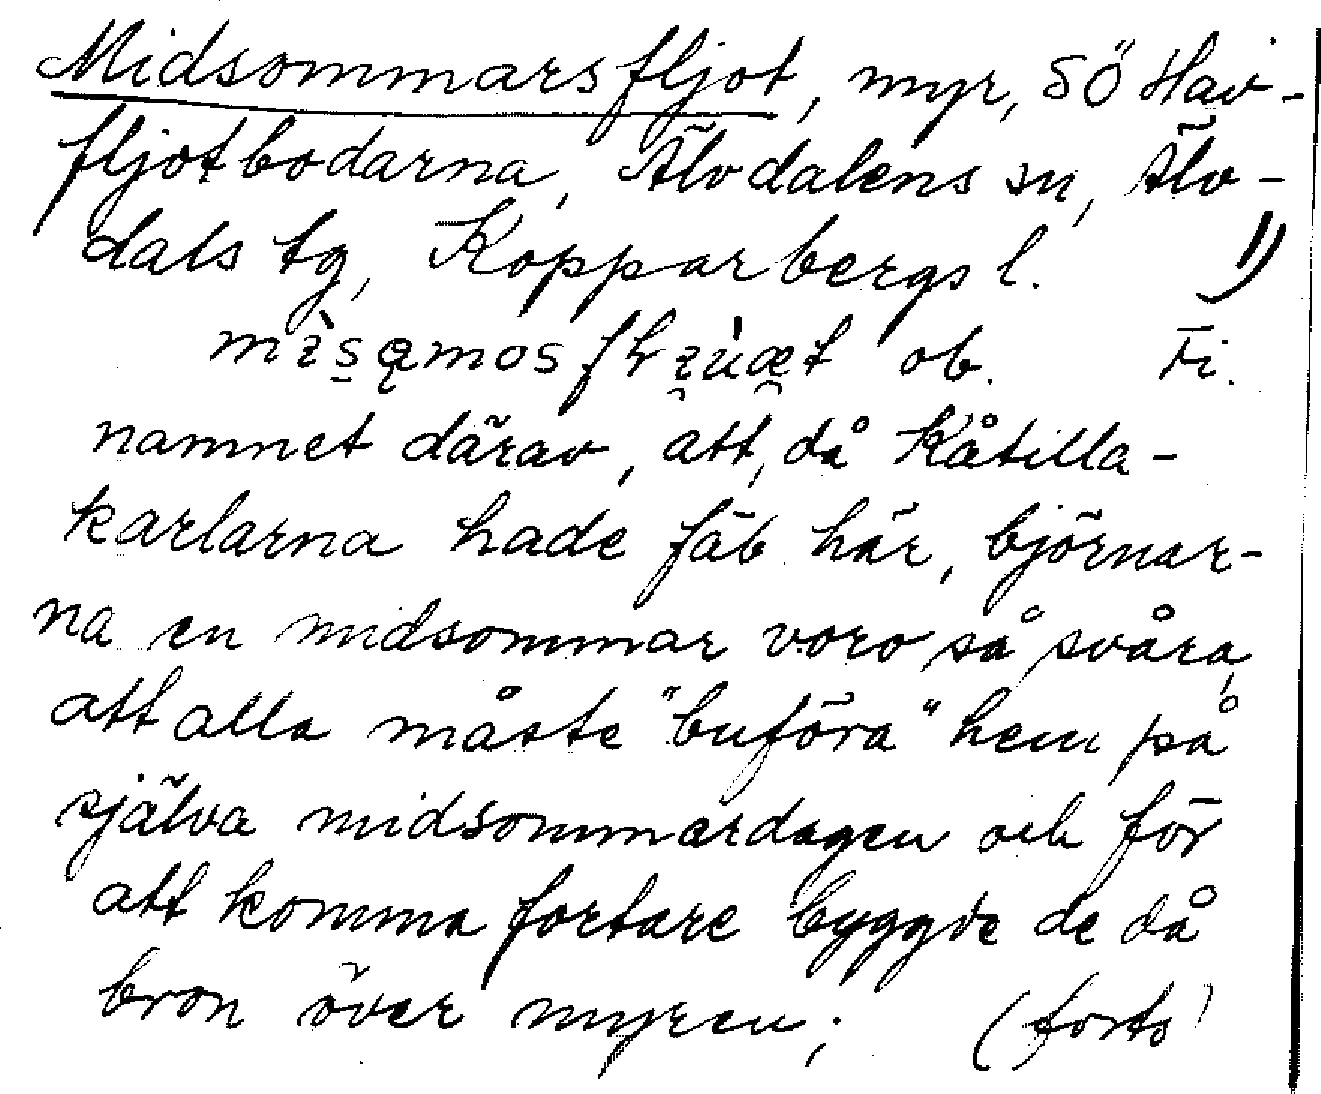 Midsommarsfljot, myr, SÖ Hav-
fljotbodarna, Älvdalens sn, Älv-
dals tg, Kopparbergs l. 1)
ob. Fi.
namnet därav, att, då Kåtilla-
karlarna hade fäb här, björnar-
na en midsommar voro så svåra,
att alla måste "buföra" hem på
själva midsommardagen och för
att komma fortare byggde de då
bron över myren; (forts)